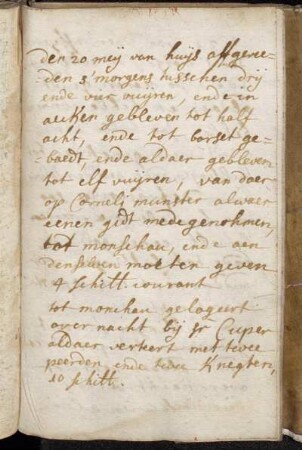 den 20 meij van huijs affgeree-
den s'morgens tusschen drij
ende vier vuijren, ende in
aecken gebleven tot half
acht, ende tot borset ge-
baedt ende aldaer gebleven
tot elf vuijren, van daer
op Corneli munster alwaer
eenen gidt mede genohmen,
tot monschau, ende aen
denselven moeten geven
4 schill. courant
tot monchau gelogeert
over nacht bij Sr Cuper
aldaer verteert met twee
peerden ende twee Knegten,
10 schill.